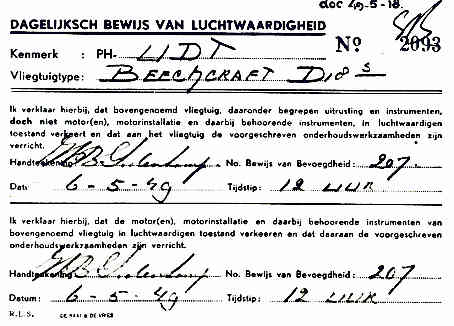 doc 49-5-18.
DAGELIJKSCH BEWIJS VAN LUCHTWAARDIGHEID
Nº 2093
Kenmerk : PH- UDT
Vliegtuigtype: BEECHCRAFT D18 S
Ik verklaar hierbij, dat bovengenoemd vliegtuig, daaronder begrepen uitrusting en instrumenten,
doch niet motor(en), motorinstallatie en daarbij behoorende instrumenten, in luchtwaardigen
toestand verkeert en dat aan het vliegtuig de voorgeschreven onderhoudswerkzaamheden zijn
verricht.
Handteekening: No. Bewijs van Bevoegdheid: 207.
Datum: 6-5-49 Tijdstip: 12 UUR
Ik verklaar hierbij, dat de motor(en), motorinstallatie en daarbij behoorende instrumenten van
bovengenoemd vliegtuig in luchtwaardigen toestand verkeeren en dat daaraan de voorgeschreven
onderhoudswerkzaamheden zijn verricht.
Handteekening: No. Bewijs van Bevoegdheid: 207
Datum: 6-5-49 Tijdstip: 12 UUR
R.L.S.